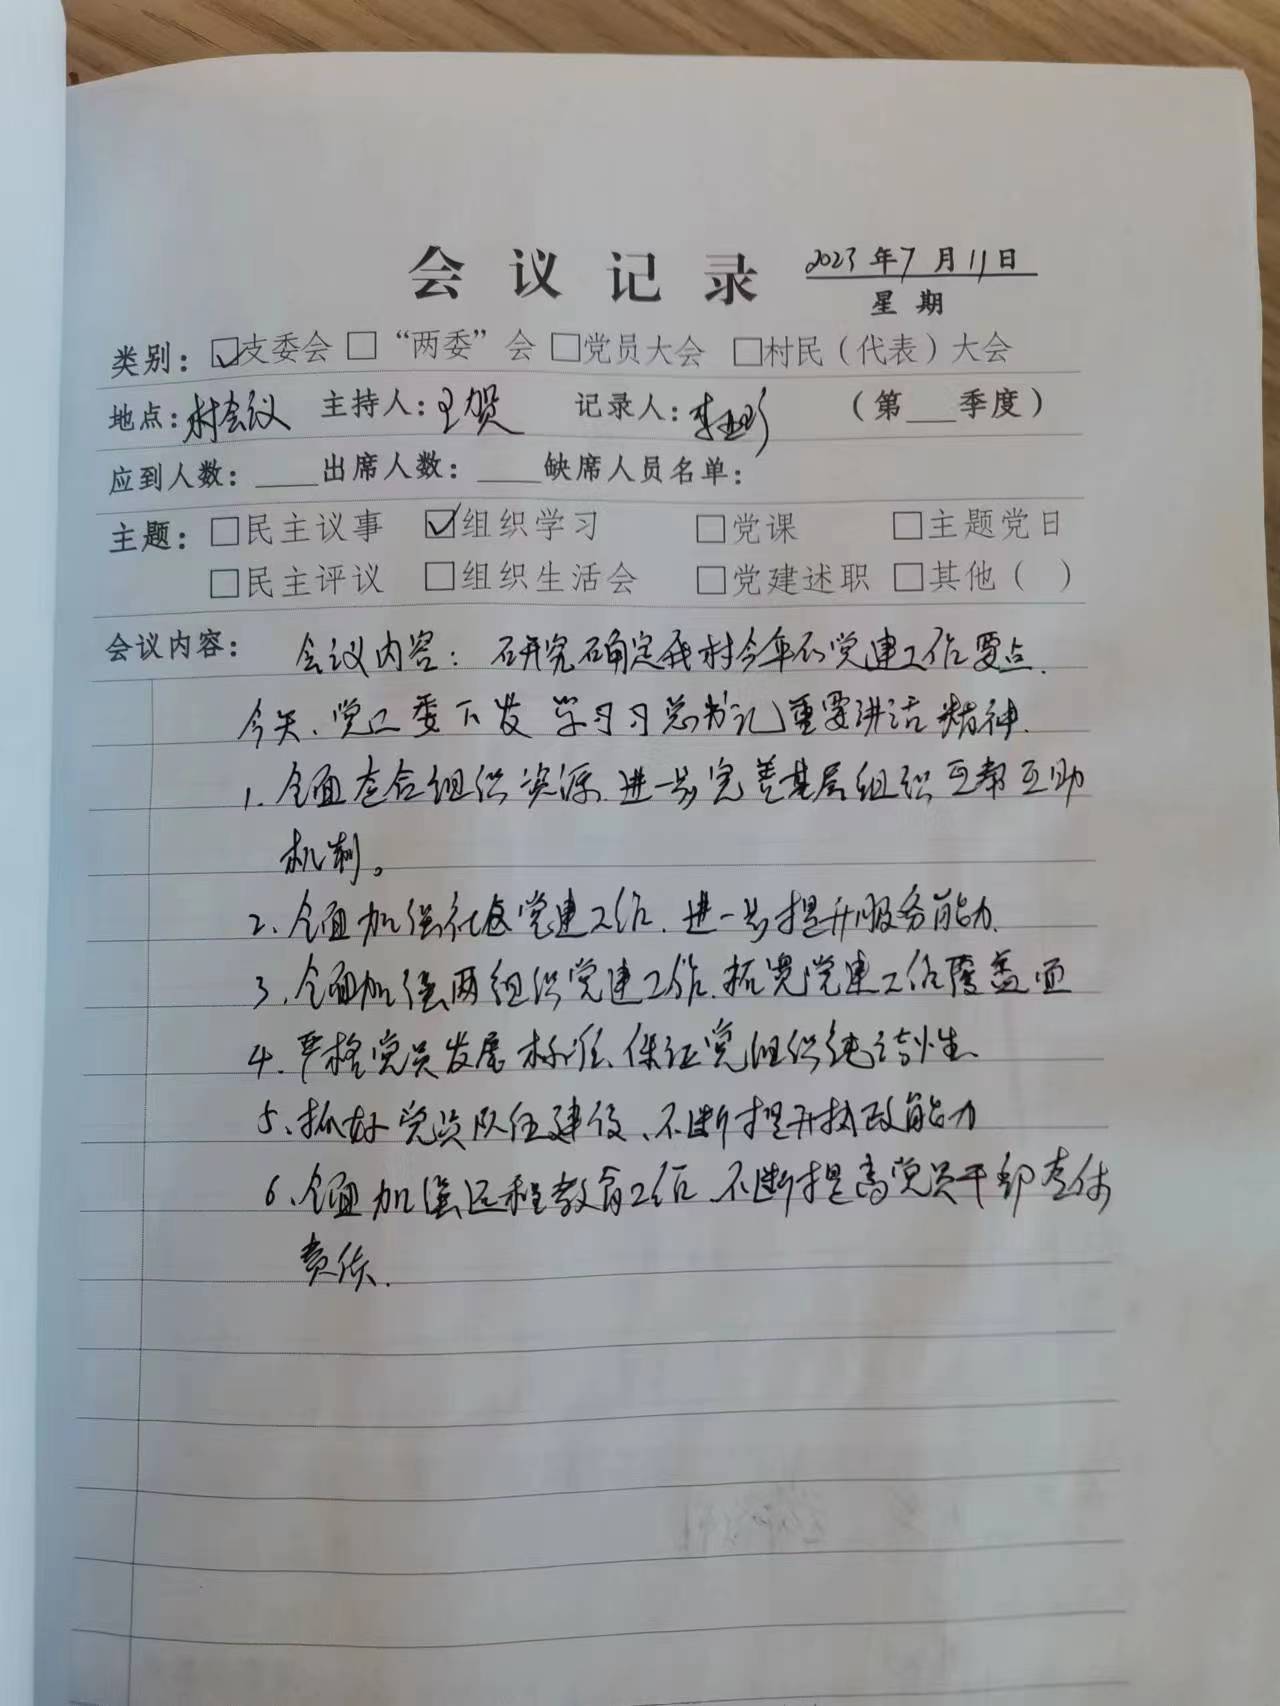 会议记录 2023年7月11日
星期
类别：☑支委会 □“两委”会 □党员大会 □村民（代表）大会
地点：村会议 主持人：王贺 记录人：李 （第___季度）
应到人数：____出席人数：____缺席人员名单：
主题：□民主议事 ☑组织学习 □党课 □主题党日
□民主评议 □组织生活会 □党建述职 □其他（ ）
会议内容： 会议内容：研究确定我村今年的党建工作要点.
今天、党工委下发 学习习总书记重要讲话精神.
1. 全面整合组织资源.进一步完善基层组织互帮互助
机制。
2、全面加强社区党建工作.进一步提升服务能力.
3、全面加强两组织党建工作.拓宽党建工作覆盖面
4、严格党员发展标准、保证党组织纯洁性、
5、抓好党员队伍建设、不断提升执政能力
6、全面加强远程教育工作、不断提高党员干部